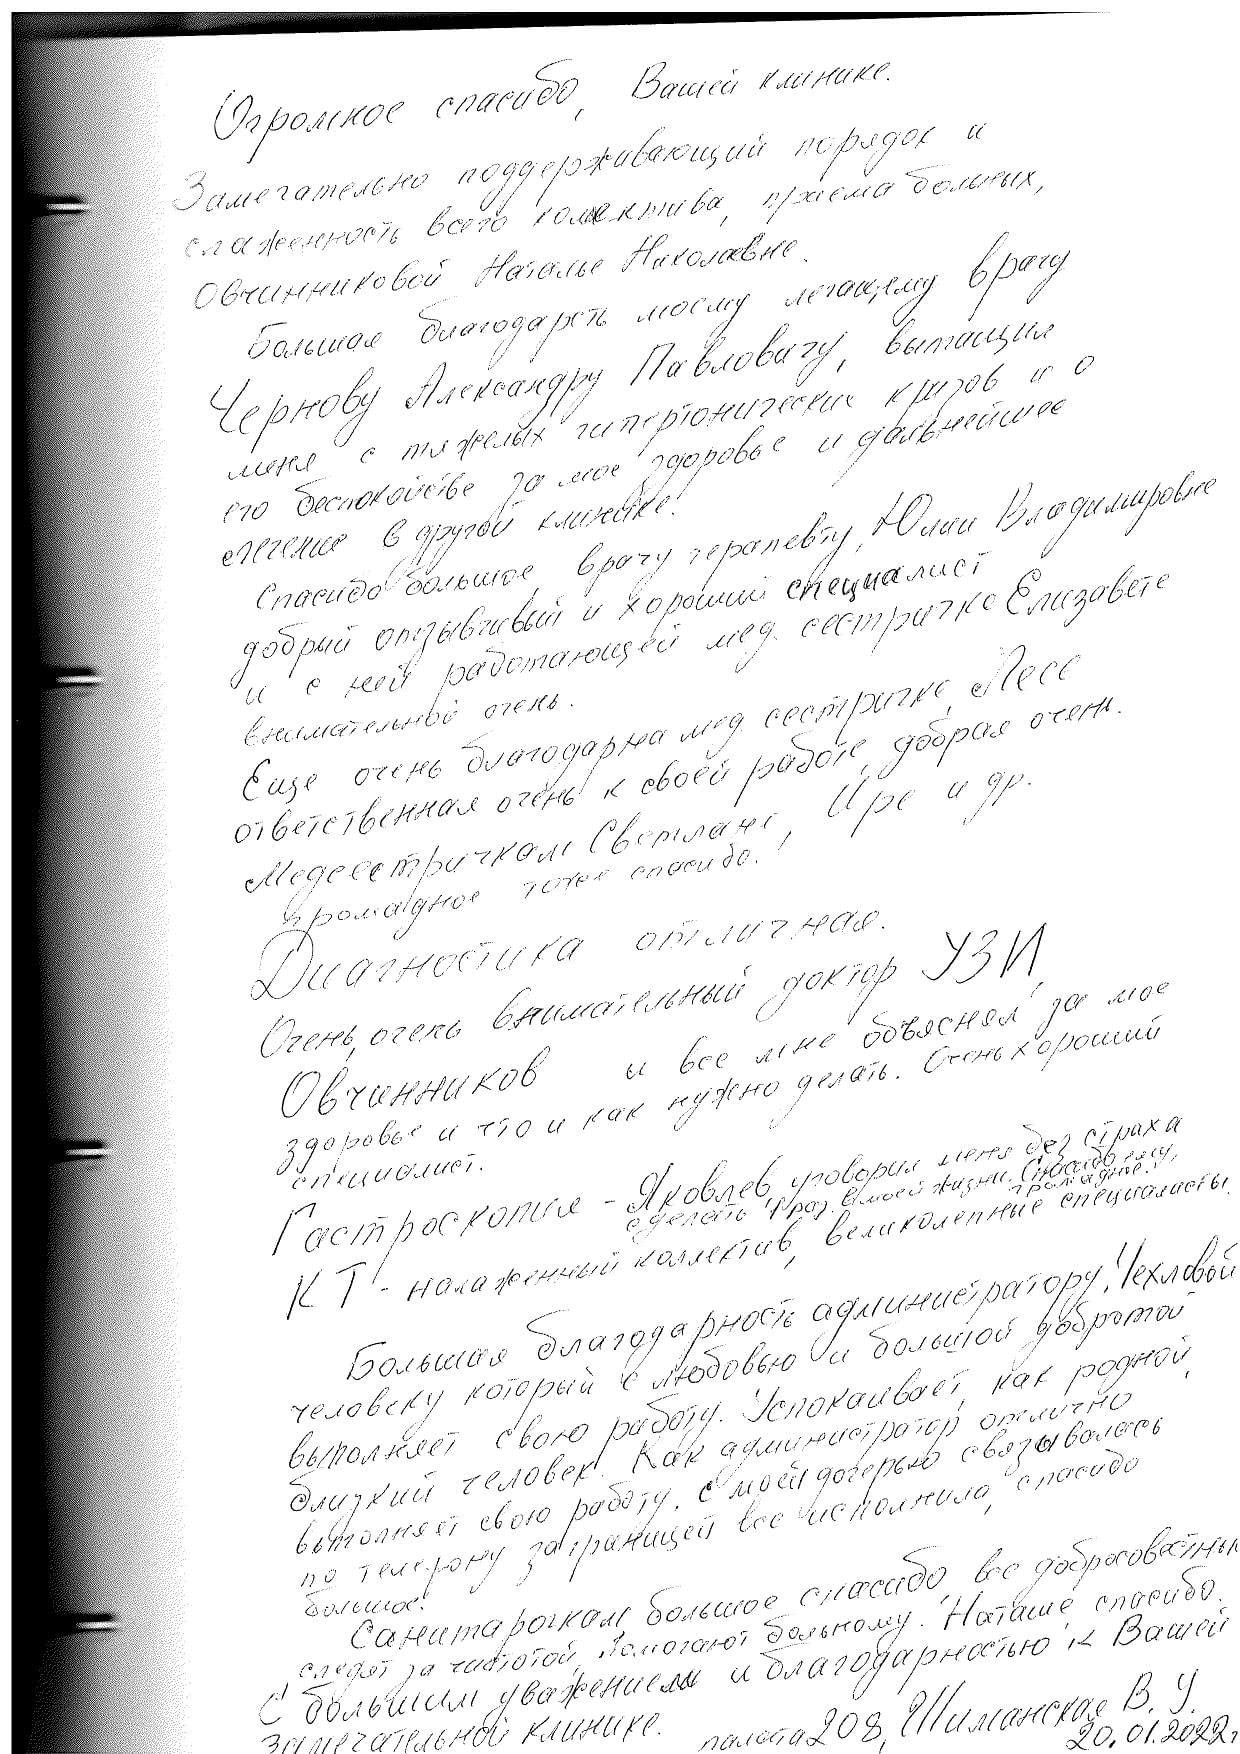 Огромное спасибо, Вашей клинике.
Замечательно поддерживающий порядок и
слаженность всего коллектива, приема больных,
Овчинниковой Наталье Николаевне.
Большая благодарсть моему лечащему врачу
Чернову Александру Павловичу, вытащил
меня с тяжелых гипертонических кризов и о
его беспокойстве за мое здоровье и дальнейшее
лечение в другой клинике.
Спасибо большое врачу терапевту, Юлии Владимировне
добрый отзывчивый и хороший специалист
и с ней работающей мед. сестричке Елизавете
внимательной очень.
Еще очень благодарна мед. сестричке, Лесе
ответственная очень к своей работе, добрая очень.
Медсестричкам Светлане, Ире и др.
громадное тоже спасибо.
Диагностика отличная.
Очень, очень внимательный доктор УЗИ,
Овчинников и все мне объяснял за мое
здоровье и что и как нужно делать. Очень хороший
специалист.
Гастроскопия - Яковлев, уговорил меня без страха
сделать 1 раз в моей жизни. Спасибо ему,
громадное.
КТ - налаженный коллектив, великолепные специалисты.
Большая благодарность администратору, Чехловой
человеку который с любовью и большой добротой
выполняет свою работу. Успокаивает, как родной,
близкий человек. Как администратор отлично
выполняет свою работу, с моей дочерью связывалась
по телефону заграницей все исполнила, спасибо
большое.
Санитарочкам большое спасибо, все добросовестные
следят за чистотой, помогают больному. Наташе спасибо.
С большим уважением и благодарностью к Вашей
замечательной клинике.
палата 208, Шиманская В. У.
20.01.2022г